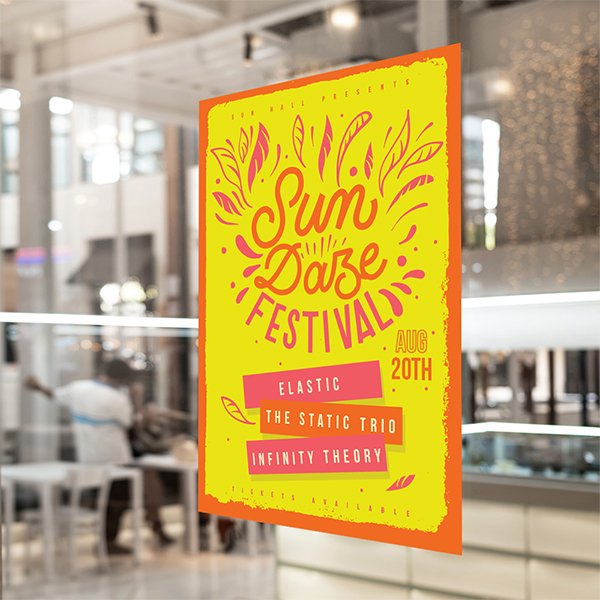 SUN HALL PRESENTS
Sun
Daze
FESTIVAL
AUG
20TH
ELASTIC
THE STATIC TRIO
INFINITY THEORY
TICKETS AVAILABLE